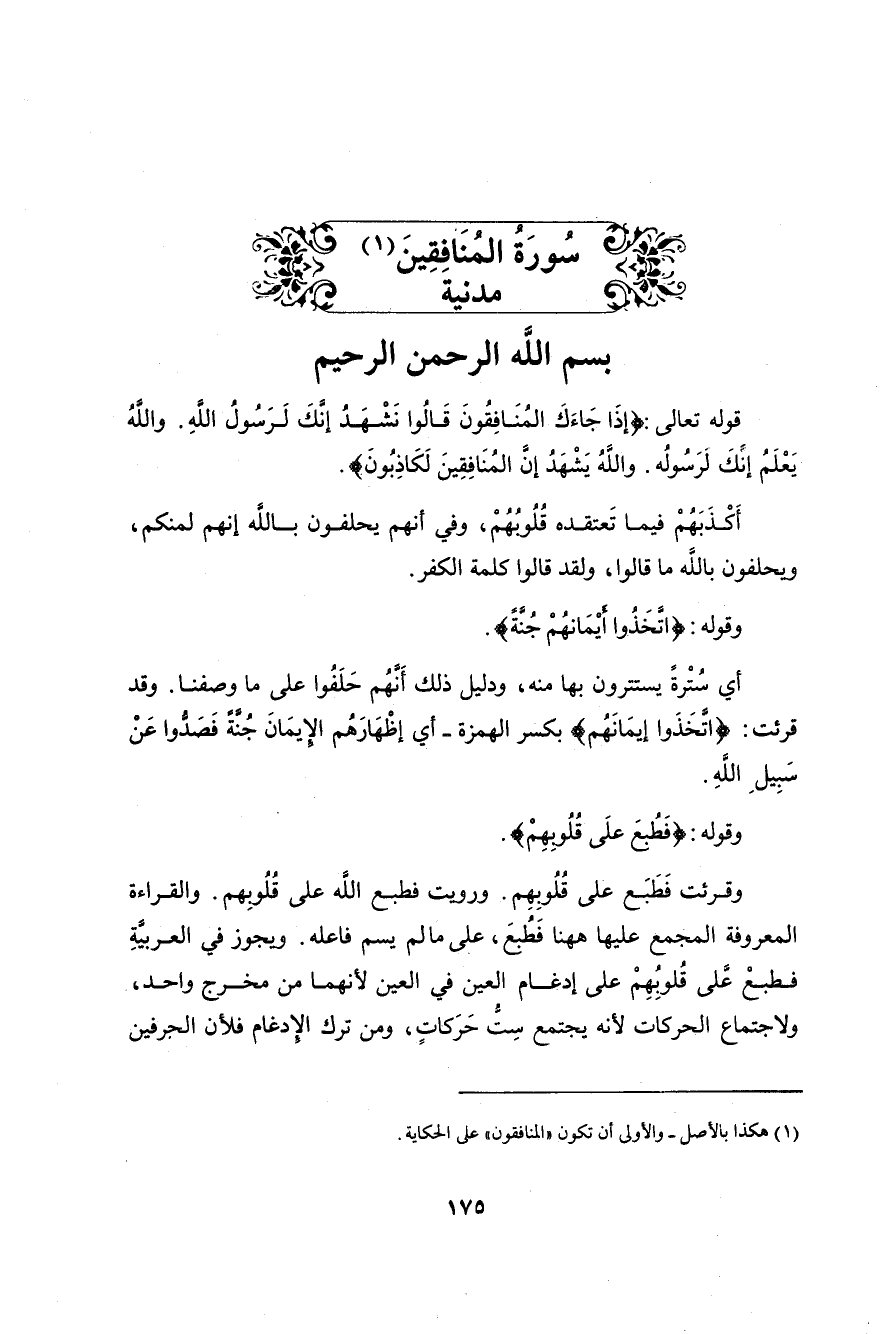 سُورَةُ المُنَافِقِينَ (١)
مدنية
بسم اللَّه الرحمن الرحيم
قوله تعالى: ﴿إِذَا جَاءَكَ المُنَافِقُونَ قَالُوا نَشْهَدُ إِنَّكَ لَرَسُولُ اللَّهِ. واللَّهُ
يَعْلَمُ إِنَّكَ لَرَسُولُه. واللَّهُ يَشْهَدُ إِنَّ المُنَافِقِينَ لَكَاذِبُونَ﴾.
أَكْذَبَهُمْ فيما تَعتقده قُلُوبُهُمْ، وفي أنهم يحلفون باللَّه إنهم لمنكم،
ويحلفون باللَّه ما قالوا، ولقد قالوا كلمة الكفر.
وقوله: ﴿اتَّخَذُوا أَيْمَانهُمْ جُنَّةً﴾.
أي سُتْرةً يستترون بها منه، ودليل ذلك أَنَّهُم حَلَفُوا على ما وصفنا. وقد
قرئت: ﴿اتَّخَذُوا إيمَانَهُم﴾ بكسر الهمزة - أي إظْهَارَهُم الإِيمَانَ جُنَّةً فَصَدُّوا عَنْ
سَبِيلِ اللَّهِ.
وقوله: ﴿فَطُبِعَ علَى قُلُوبِهِمْ﴾.
وقرئت فَطَبَع على قُلُوبِهِم. ورويت فطبع اللَّه على قُلُوبهم. والقراءة
المعروفة المجمع عليها ههنا فَطُبِعَ، على مالم يسم فاعله. ويجوز في العربيَّةِ
فطبعْ عَّلى قُلوبُهِمْ على إدغام العين في العين لأنهما من مخرج واحد،
ولاجتماع الحركات لأنه يجتمع سِتُّ حَرَكاتٍ، ومن ترك الإدغام فلأن الحرفين
(١) هكذا بالأصل - والأولى أن تكون «المنافقون» على الحكاية.
١٧٥